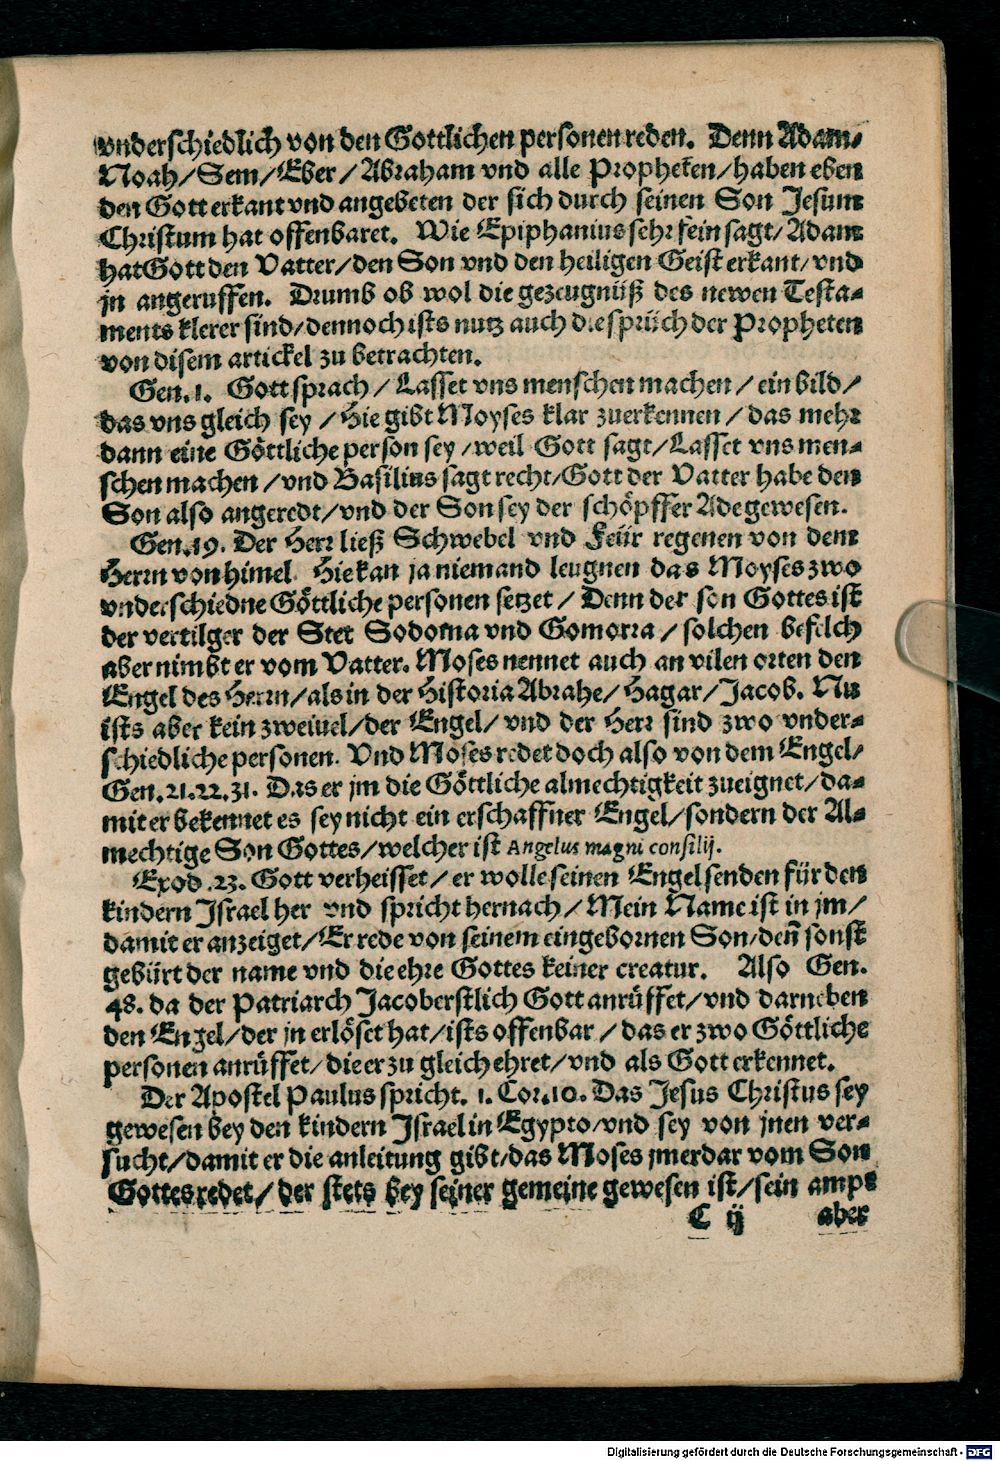 vnderschiedlich von den Gottlichen personen reden. Denn Adam/
Noah/Sem/Eber/Abraham vnd alle Propheten/haben eben
den Gott erkant vnd angebeten der sich durch seinen Son Jesum
Christum hat offenbaret. Wie Epiphanius sehr fein sagt/Adam
hat Gott den Vatter/den Son vnd den heiligen Geist erkant/vnd
jn angeruffen. Drumb ob wol die gezeugnüß des newen Testa-
ments klerer sind/dennoch ists nutz auch die sprüch der Propheten
von disem artickel zu betrachten.
Gen.1. Gott sprach/Lasset vns menschen machen/ein bild/
das vns gleich sey/Hie gibt Moyses klar zuerkennen/das mehr
dann eine Göttliche person sey/weil Gott sagt/Lasset vns men-
schen machen/vnd Basilius sagt recht/Gott der Vatter habe den
Son also angeredt/vnd der Son sey der schöpffer Ade gewesen.
Gen.19. Der Herr ließ Schwebel vnd Feür regenen von dem
Herrn von himel. Hie kan ja niemand leugnen das Moyses zwo
vnderschiedne Göttliche personen setzet/Denn der son Gottes ist
der vertilger der Stet Sodoma vnd Gomorra/solchen befelch
aber nimbt er vom Vatter. Moses nennet auch an vilen orten den
Engel des Herrn/als in der Historia Abrahe/Hagar/Jacob. Nu
ists aber kein zweiuel/der Engel/vnd der Herr sind zwo vnder-
schiedliche personen. Vnd Moses redet doch also von dem Engel/
Gen.21.22.31. Das er jm die Göttliche almechtigkeit zueignet/da-
mit er bekennet es sey nicht ein erschaffner Engel/sondern der Al-
mechtige Son Gottes/welcher ist Angelus magni consilij.
Exod.23. Gott verheisset/er wolle seinen Engel senden für den
kindern Israel her vnd spricht hernach/Mein Name ist in jm/
damit er anzeiget/Er rede von seinem eingebornen Son/deñ sonst
gebürt der name vnd die ehre Gottes keiner creatur. Also Gen.
48. da der Patriarch Jacob erstlich Gott anrüffet/vnd darneben
den Engel/der jn erlöset hat/ists offenbar/das er zwo Göttliche
personen anrüffet/die er zu gleich ehret/vnd als Gott erkennet.
Der Apostel Paulus spricht. 1. Cor.10. Das Jesus Christus sey
gewesen bey den kindern Israel in Egypto/vnd sey von jnen ver-
sucht/damit er die anleitung gibt/das Moses jmerdar vom Son
Gottes redet/der stets bey seiner gemeine gewesen ist/sein ampt
C ij aber
Digitalisierung gefördert durch die Deutsche Forschungsgemeinschaft - DFG